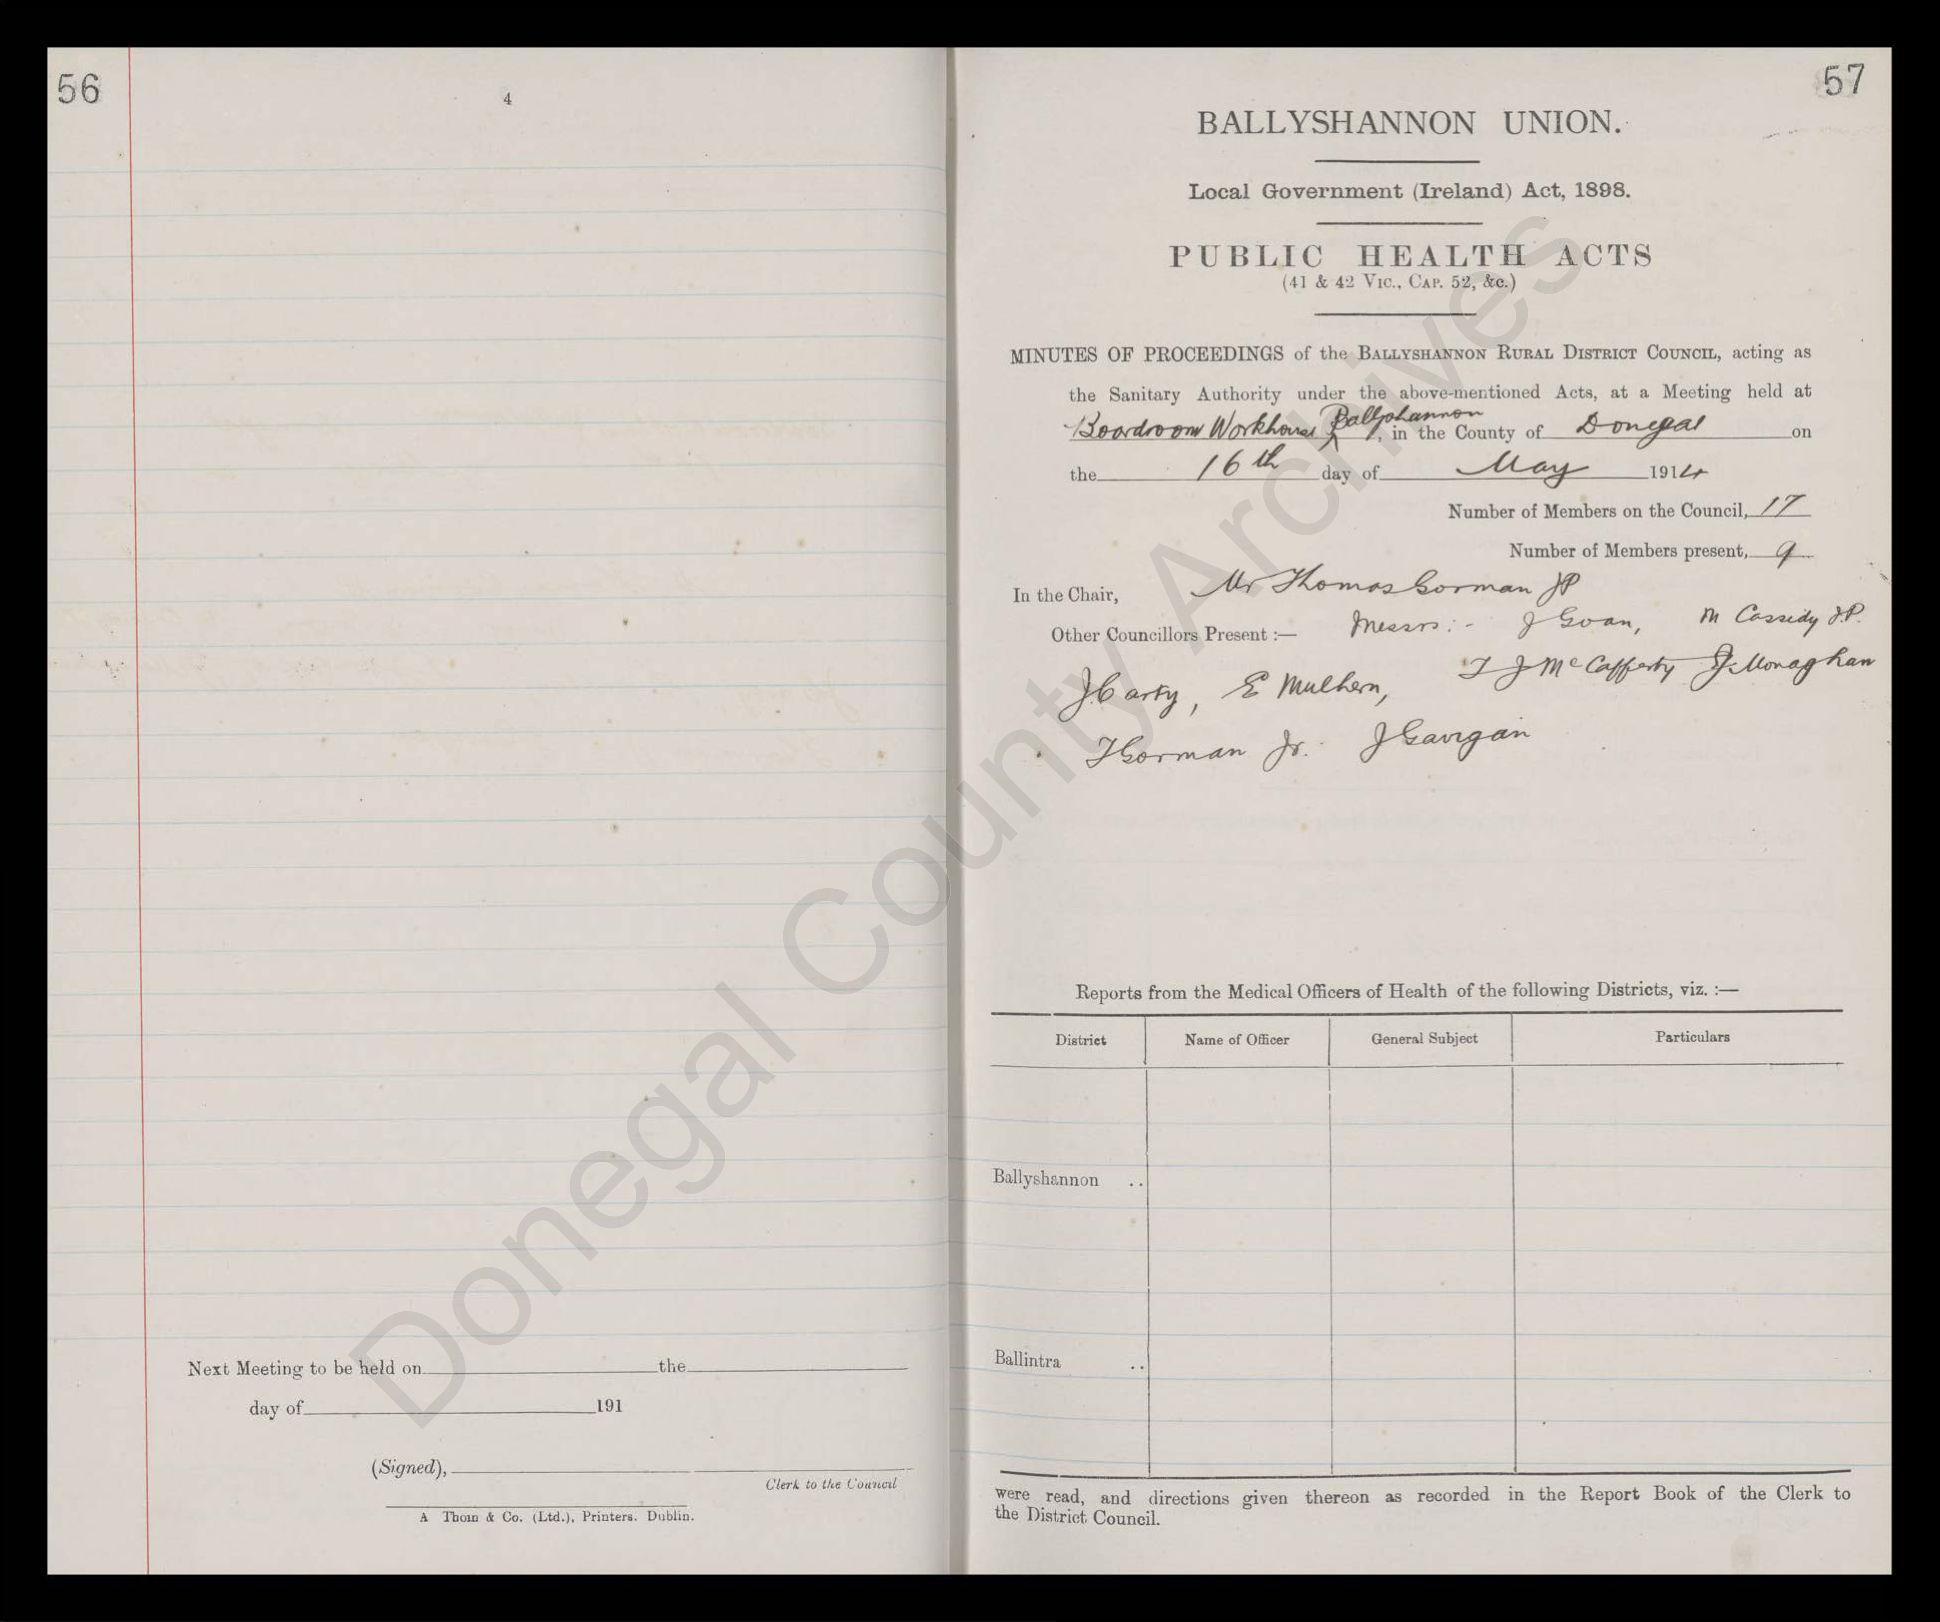 56
4
Next Meeting to be held on the
day of 191
(Signed),
Clerk to the Council
A Thom & Co. (Ltd.), Printers. Dublin.
57
BALLYSHANNON UNION.
Local Government (Ireland) Act, 1898.
PUBLIC HEALTH ACTS
(41 & 42 Vic., Cap. 52, &c.)
MINUTES OF PROCEEDINGS of the Ballyshannon Rural District Council, acting as
the Sanitary Authority under the above-mentioned Acts, at a Meeting held at
Boardroom Workhouse Ballyshannon, in the County of Donegal on
the 16th day of May 1914
Number of Members on the Council, 17
Number of Members present, 9
In the Chair, Mr Thomas Gorman JP
Other Councillors Present :— Messrs:- J Goan, M Cassidy J.P.
J Carty, E Mulhern, T J McCafferty J. Monaghan
T Gorman Jr. J Gavigan
Reports from the Medical Officers of Health of the following Districts, viz. :—
District Name of Officer General Subject Particulars
Ballyshannon ..
Ballintra ..
were read, and directions given thereon as recorded in the Report Book of the Clerk to
the District Council.
Donegal County Archives